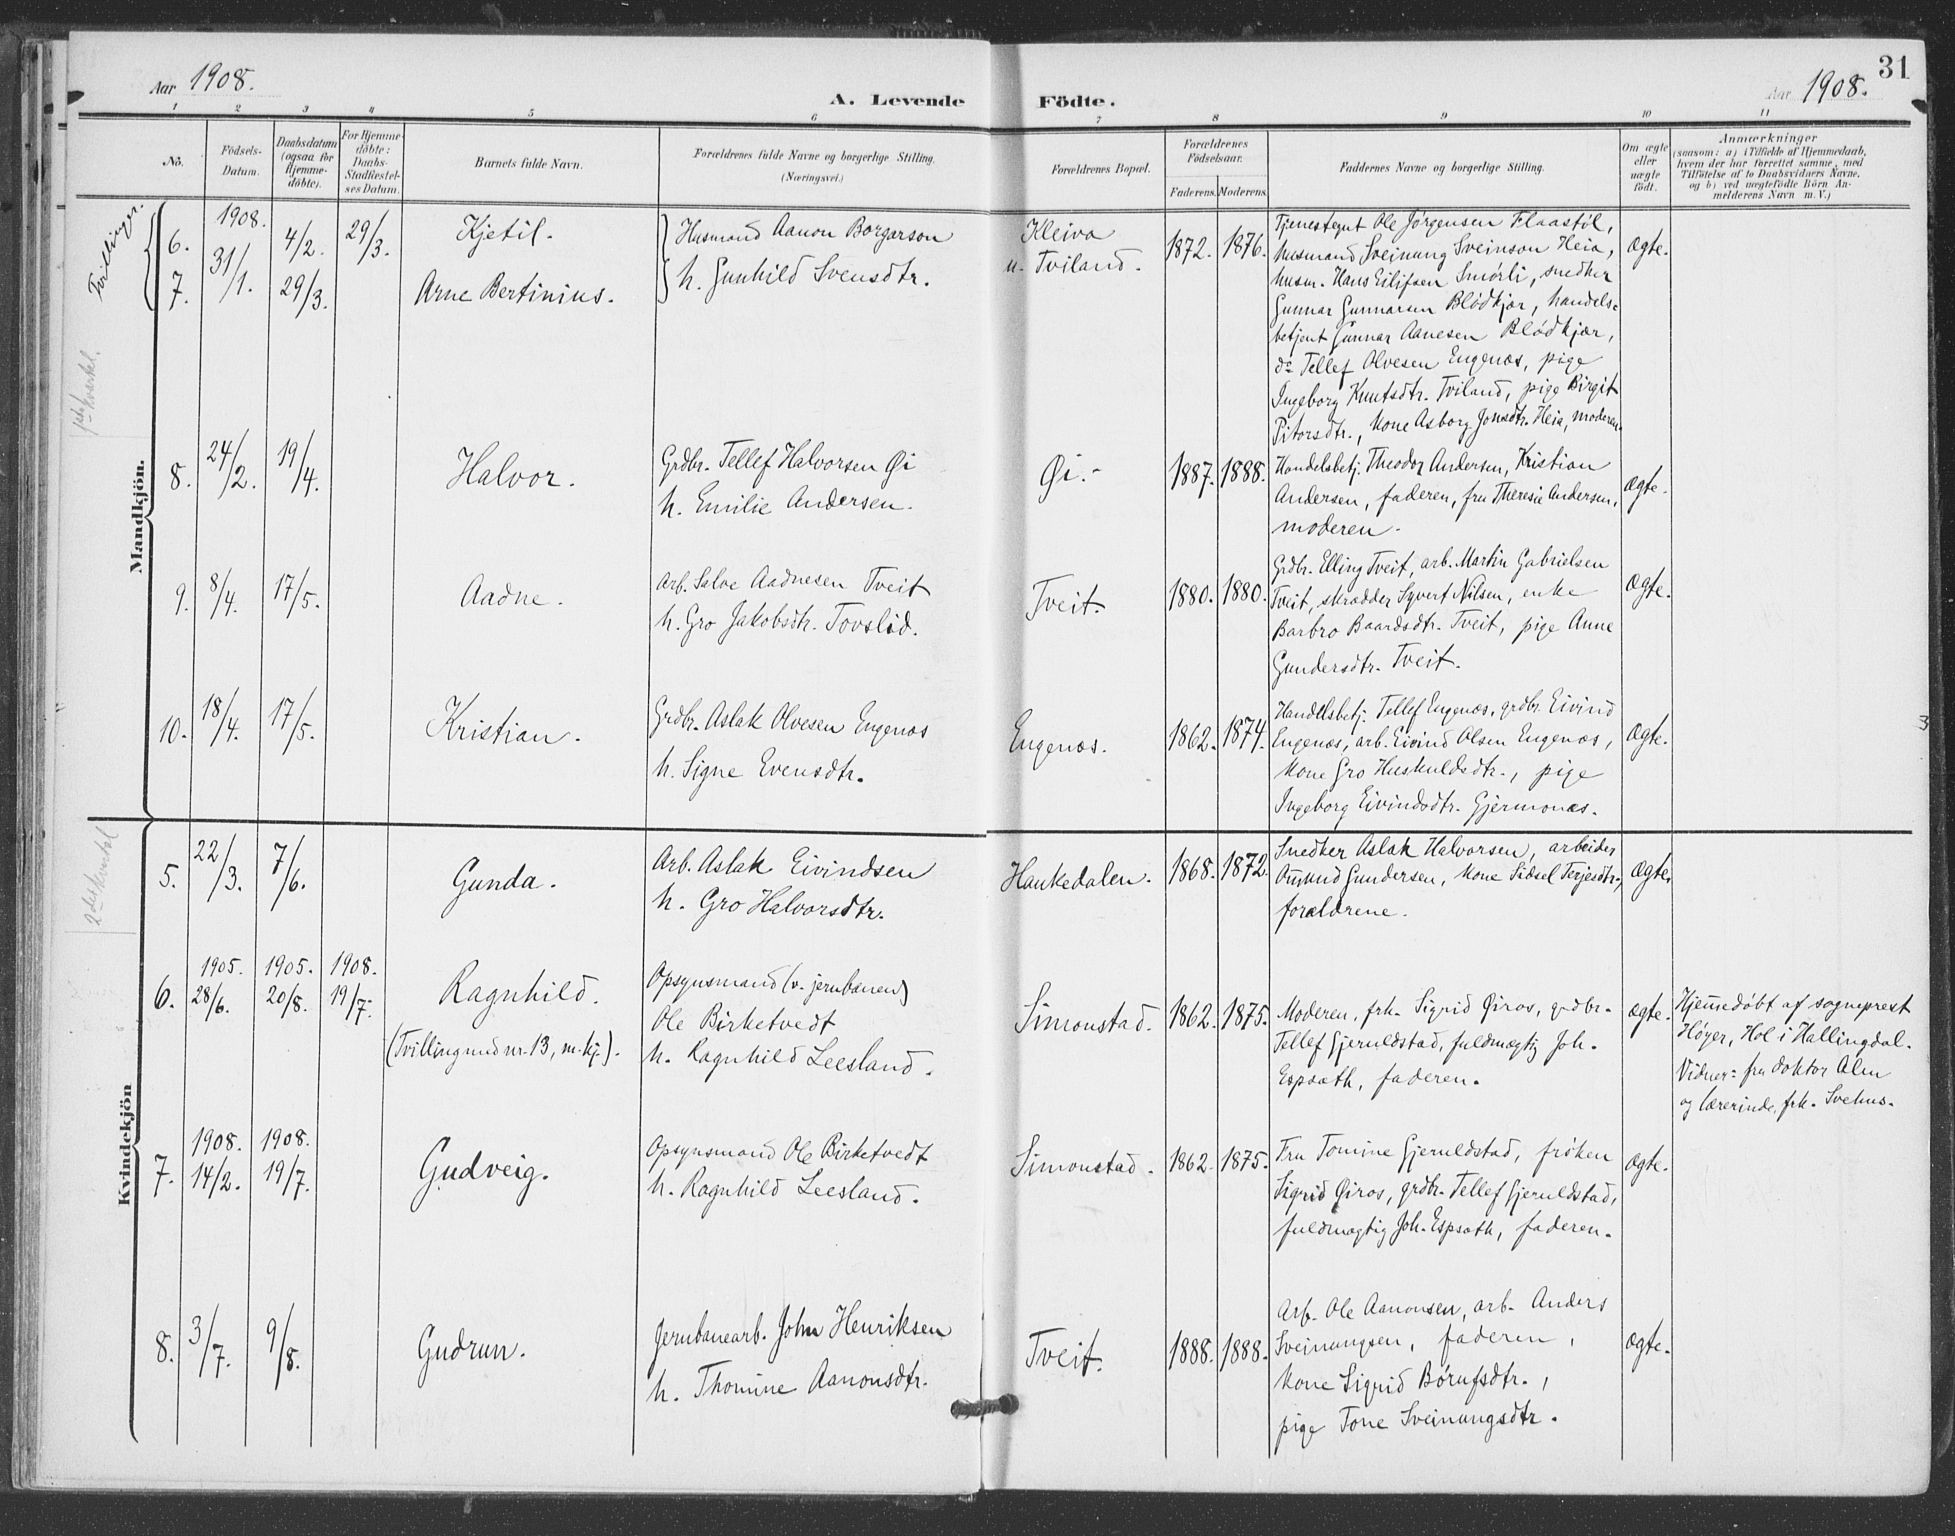 Aar 1908.
A. Levende Födte.
Aar 1908.
31
1 2 3 4 5 6 7 8 9 10 11
No.
Födsels-Datum.
Daabsdatum (ogsaa for Hjemme-döbte).
For Hjemme-döbte: Daabs-Stadfæstel-ses Datum.
Barnets fulde Navn.
Forældrenes fulde Navne og borgerlige Stilling. (Næringsvei.)
Forældrenes Bopæl.
Forældrenes Födselsaar.
Faderens. Moderens.
Faddernes Navne og borgerlige Stilling.
Om ægte eller uægte födt.
Anmærkninger
(saasom: a) i Tilfælde af Hjemmedaab,
hvem der har forrettet samme, med
Tilföielse af to Daabsvidners Navne,
og b) ved uægtefödte Börn An-
melderens Navn m. V.)
Mandkjön.
Tvillinger.
1ste kvartal.
6. 1908. 31/1. 4/2. 29/3. Kjetil.
7. 29/3. Arne Bertinius.
Husmand Aanon Borgarson
h. Gunhild Svensdtr.
Kleiva
u. Tviland.
1872. 1876.
Tjenestegut Ole Jørgensen Flaastøl,
husmand Sveinung Sveinson Heia,
husm. Hans Eilifsen Smørli, snedker
Gunnar Gunnarsen Blødkjær, handels-
betjent Gunnar Aanesen Blødkjær,
do Tellef Olvesen Engenæs, pige
Ingeborg Knutsdtr. Tviland, pige Birgit
Pitersdtr., kone Asborg Jonsdtr. Heia, moderen.
Ægte.
8. 24/2. 19/4. Halvor.
Grdbr. Tellef Halvorsen Øi
h. Emilie Andersen.
Øi.-
1887. 1888.
Handelsbetj. Theodor Andersen, Kristian
Andersen, faderen, fru Theresie Andersen,
moderen.
Ægte.
9. 8/4. 17/5. Aadne.
Arb. Salve Aadnesen Tveit
h. Gro Jakobsdtr. Tovslid.
Tveit.
1880. 1880.
Grdbr. Elling Tveit, arb. Martin Gabrielsen
Tveit, skrædder Syvert Nilsen, enke
Barbro Baardsdtr. Tveit, pige Anne
Gundersdtr. Tveit.
Ægte.
10. 18/4. 17/5. Kristian.
Grdbr. Aslak Olvesen Engenæs
h. Signe Evensdtr.
Engenæs.
1862. 1874.
Handelsbetj. Tellef Engenæs, grdbr. Eivind
Engenæs, arb. Eivind Olsen Engenæs,
kone Gro Huskuldsdtr., pige
Ingeborg Eivindsdtr. Gjermonæs.
Ægte.
3
Kvindekjön
5. 22/3. 7/6. Gunda.
Arb. Aslak Eivindsen
h. Gro Halvorsdtr.
Haukedalen.
1868. 1872.
Snedker Aslak Halvorsen, arbeider
Omund Gundersen, kone Sidsel Terjesdtr.,
forældrene.
Ægte.
6. 1905. 28/6. 1905. 20/8. 1908. 19/7. Ragnhild.
(Tvilling med nr. 13, m.kj.).
Opsynsmand (v. jernbanen)
Ole Birketvedt
h. Ragnhild Leesland.
Simonstad.
1862. 1875.
Moderen, frk. Sigrid Øiros, grdbr.
Tellef Gjeruldstad, fuldmægtig Joh.
Espsæth, faderen.
Ægte.
Hjemmedøbt af sogneprest
Høyer, Hol i Hallingdal.
Vidner: fru doktor Alm
og lærerinde, frk. Svehus.
7. 1908. 14/2. 1908. 19/7. Gudveig.
Opsynsmand Ole Birketvedt
h. Ragnhild Leesland.
Simonstad.
1862. 1875.
Fru Tomine Gjeruldstad, frøken
Sigrid Øiros, grdbr. Tellef Gjeruldstad,
fuldmægtig Joh. Espsæth, faderen.
Ægte.
8. 3/7. 9/8. Gudrun.
Jernbanearb. John Henriksen
h. Thomine Aanonsdtr.
Tveit.
1888. 1888.
Arb. Ole Aanonsen, arb. Anders
Sveinungsen, faderen,
kone Sigrid Børufsdtr.,
pige Tone Sveinungsdtr.
Ægte.